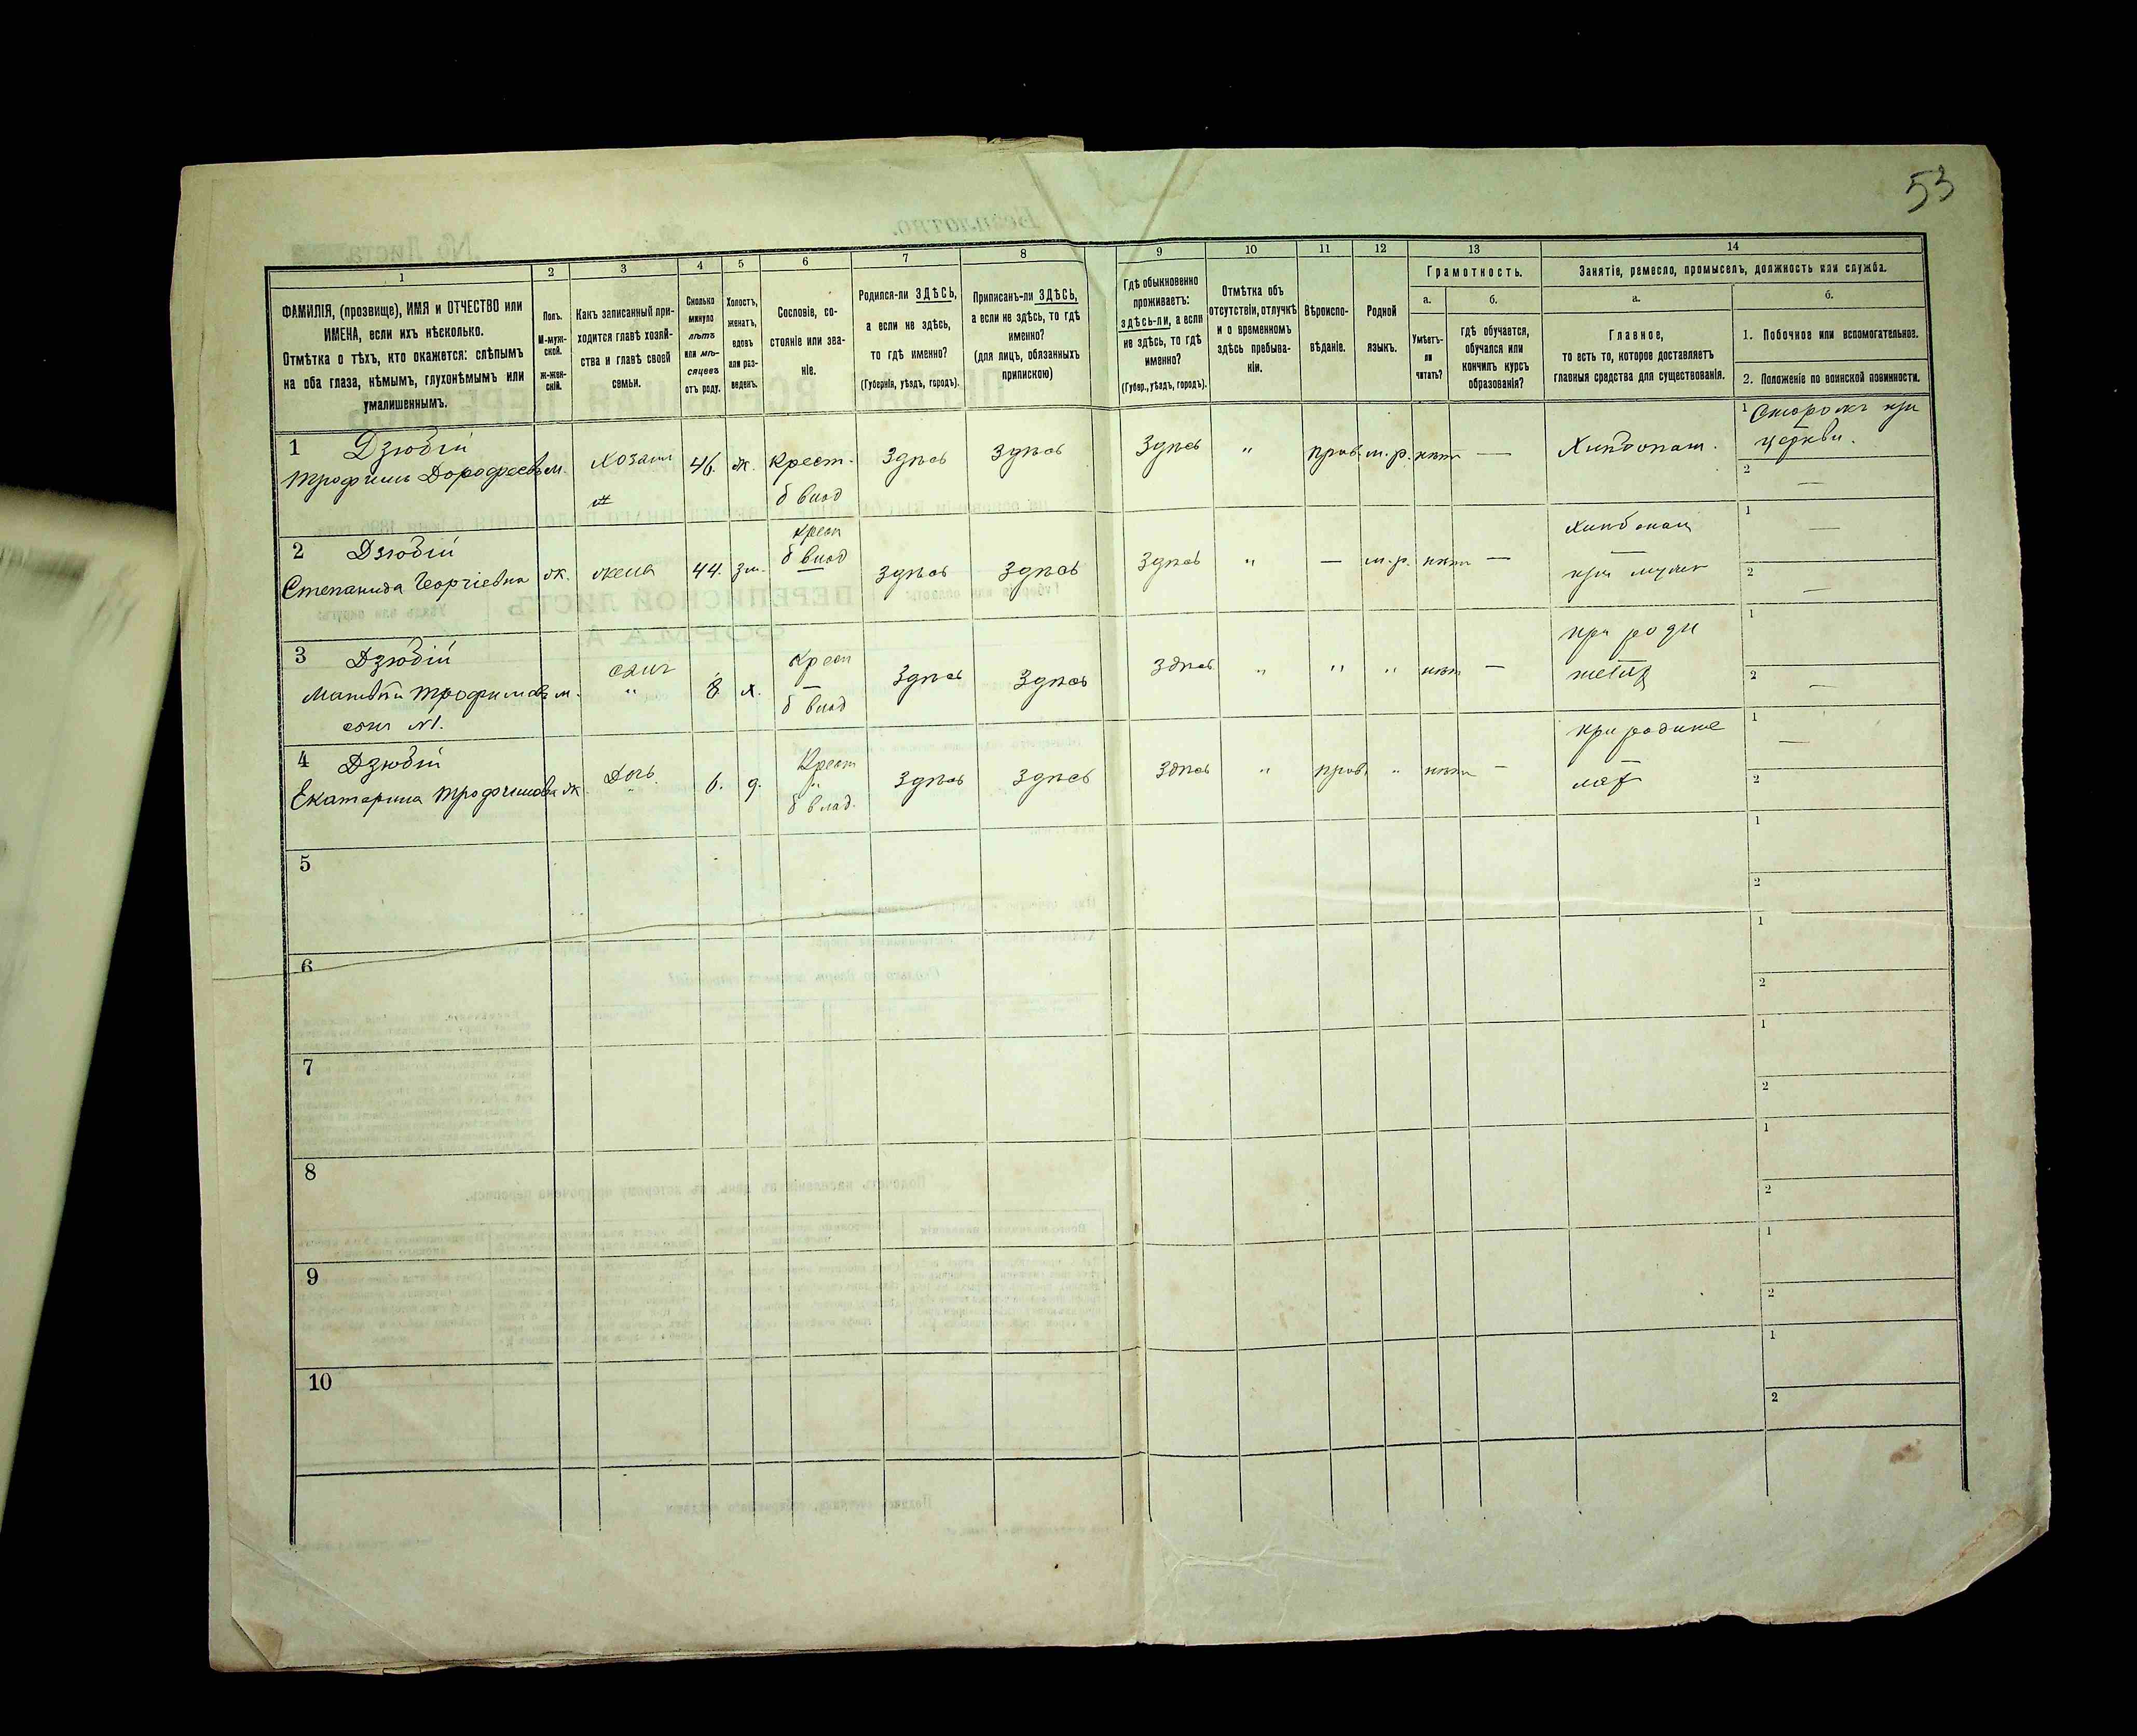 53
1
2
3
4
5
6
7
8
9
10
11
12
13
14
ФАМИЛІЯ, (прозвище), ИМЯ и ОТЧЕСТВО или
ИМЕНА, если ихъ нѣсколько.
Отмѣтка о тѣхъ, кто окажется: слѣпымъ
на оба глаза, нѣмымъ, глухонѣмымъ или
умалишеннымъ.
Полъ.
М-муж-
ской.
Ж-жен-
скій.
Какъ записанный при-
ходится главѣ хозяй-
ства и главѣ своей
семьи.
Сколько
минуло
лѣтъ
или мѣ-
сяцевъ
отъ роду.
Холостъ,
женатъ,
вдовъ
или раз-
веденъ.
Сословіе, со-
стояніе или зва-
ніе.
Родился-ли ЗДѢСЬ,
а если не здѣсь,
то гдѣ именно?
(Губернія, уѣздъ, городъ).
Приписанъ-ли ЗДѢСЬ,
а если не здѣсь, то гдѣ
именно?
(для лицъ, обязанныхъ
припискою)
Гдѣ обыкновенно
проживаетъ:
здѣсь-ли, а если
не здѣсь, то гдѣ
именно?
(Губер., уѣздъ, городъ).
Отмѣтка объ
отсутствіи, отлучкѣ
и о временномъ
здѣсь пребыва-
ніи.
Вѣроиспо-
вѣданіе.
Родной
языкъ.
Грамотность.
а.
Умѣетъ-
ли
читать?
б.
гдѣ обучается,
обучался или
кончилъ курсъ
образованія?
Занятіе, ремесло, промыселъ, должность или служба.
а.
Главное,
то есть то, которое доставляетъ
главныя средства для существованія.
б.
1. Побочное или вспомогательное.
2. Положеніе по воинской повинности.
1 Дзюбій
Трофимъ Дорофеевъ
м.
хозаин
46.
ж.
Крест.
б влад
Здѣсь
Здѣсь
Здѣсь
"
прав.
м. р.
нѣтъ
—
Хлибопаш.
1 Сторожъ при
церкви.
2 —
2 Дзюбій
Степанида Георгіевна
ж.
жена
44.
зм.
Крест
б влад
Здѣсь
Здѣсь
Здѣсь
"
—
м. р.
нѣтъ
—
Хлибопаш
при мужѣ
1 —
2 —
3 Дзюбій
Матвѣй Трофимовъ
сынъ №1.
м.
сынъ
"
8
х.
Крест
б влад
Здѣсь
Здѣсь
Здѣсь
"
"
"
нѣтъ
—
при роди
1
2 —
4 Дзюбій
Екатерина Трофимова
ж.
Дочь.
6.
д.
Крест
б влад.
Здѣсь
Здѣсь
Здѣсь
"
прав.
"
нѣтъ
—
1 —
2
5
1
2
6
1
2
7
1
2
8
1
2
9
1
2
10
1
2